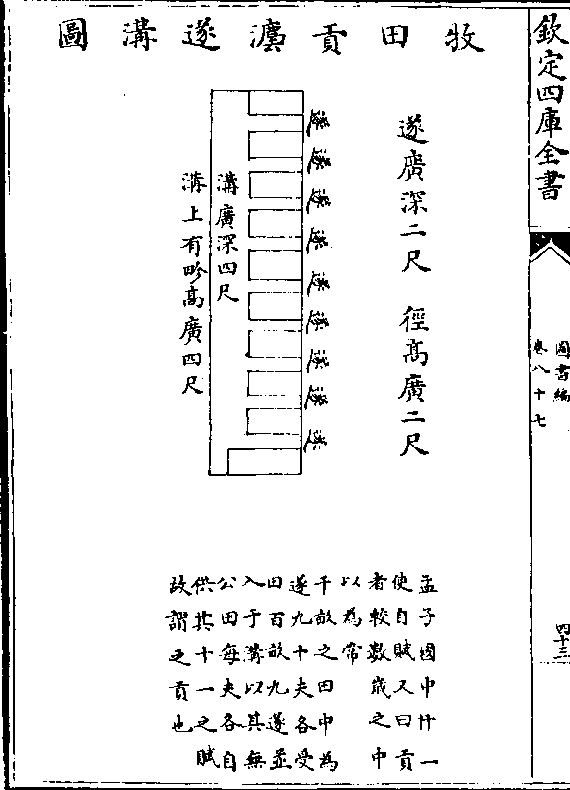 欽定四庫全書
圖書編
卷八十七
四十三
牧田貢灋遂溝圖
遂廣深二尺　徑髙廣二尺
遂
遂
遂
遂
遂
遂
遂
遂
遂
溝廣深四尺
溝上有畛髙廣四尺
孟子國中什一
使自賦又曰貢
者較數歳之中
以為常
千畝之田中為
遂九十夫各受
田百畝九遂並
入于溝以其無
公田每夫各自
供其十一之賦
故謂之貢也